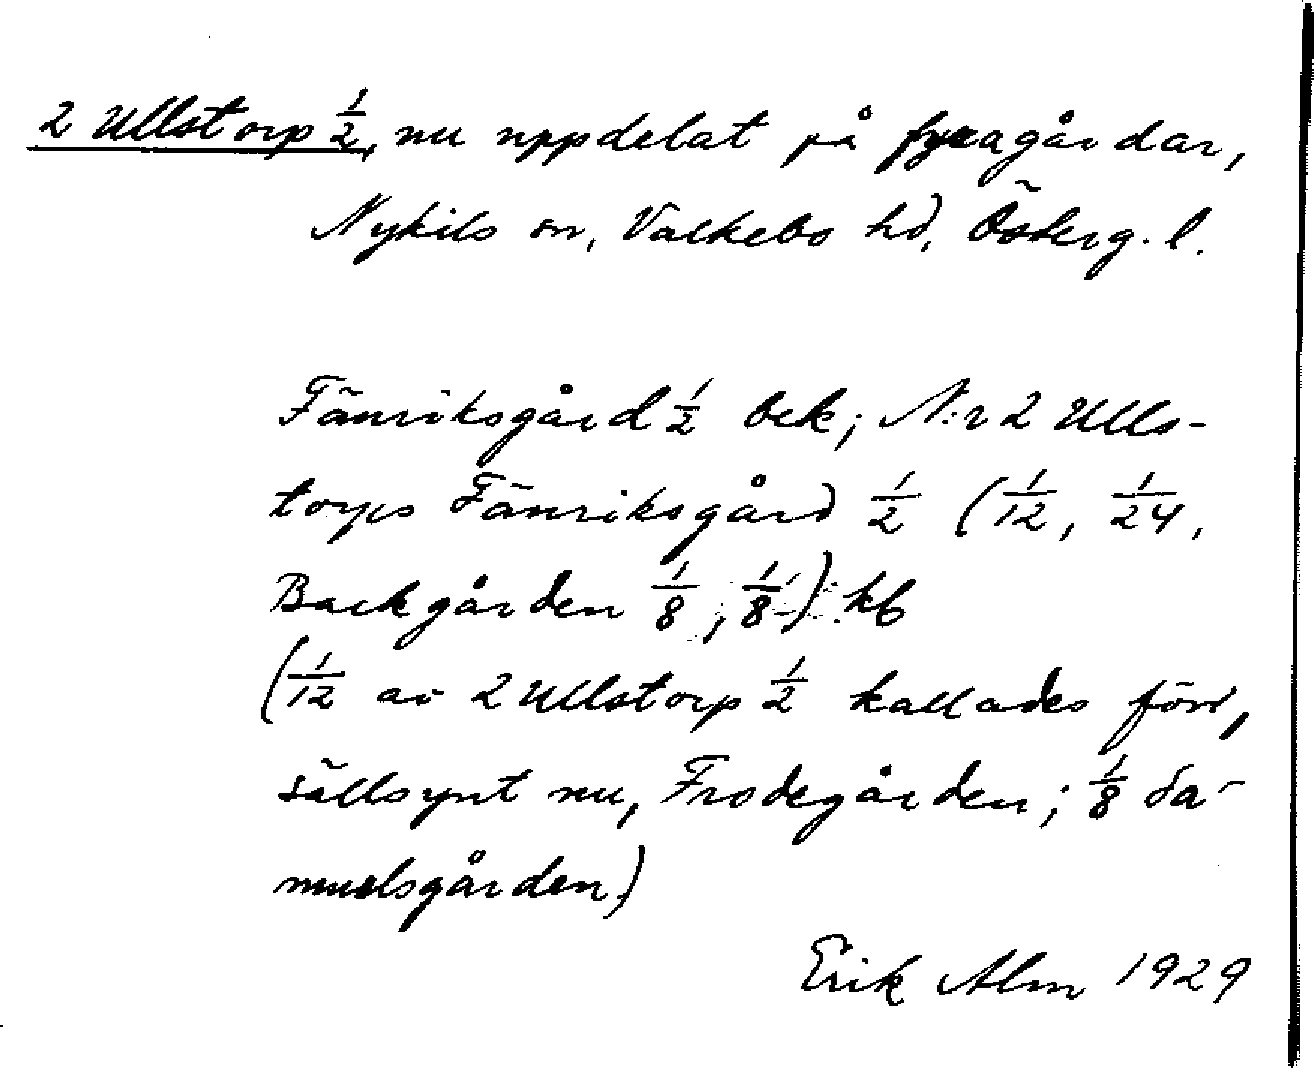 2 Ullstorp 1/2, nu uppdelat på fyra gårdar,
Nykils sn, Valkebo hd, Österg. l.
Fänriksgård 1/2 bek; N:r 2 Ulls-
torps Fänriksgård 1/2 (1/12, 1/24,
Backgården 1/8, 1/8) kb
(1/12 av 2 Ullstorp 1/2 kallades förr,
sällsynt nu, Frodegården; 1/8 Sa-
muelsgården)
Erik Alm 1929